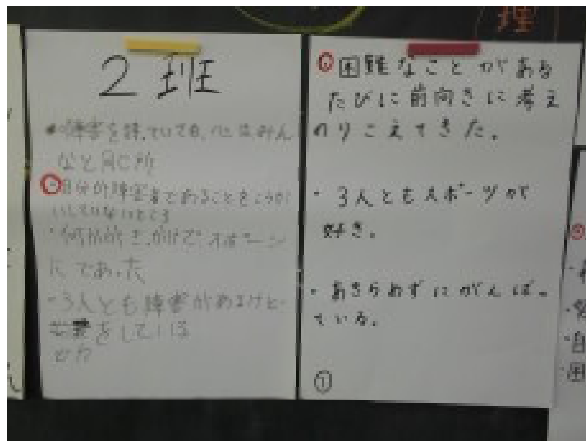 理
2班
・障害を持っていても、心はみん
なと同じ所
・自分が障害者であることをこうか
いしていないところ
・何か好き、がけで、スポーツ
にであった
・3人とも障害があるけど
をしている
困難なことがある
たびに前向きに考え
のりこえてきた。
・3人ともスポーツが
好き。
・あきらめずにがんばっ
ている。
①